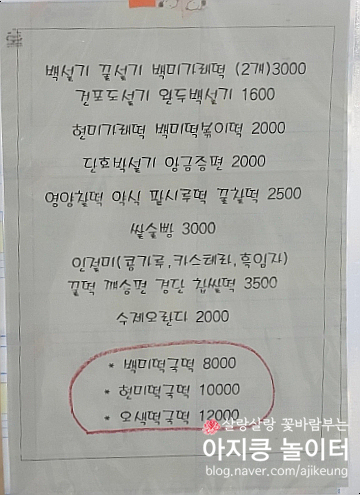 백설기 꿀설기 백미가래떡 (2개)3000
건포도설기 완두백설기 1600
현미가래떡 백미떡볶이떡 2000
단호박설기 앙금증편 2000
영양찰떡 약식 팥시루떡 꿀찰떡 2500
쌀술빵 3000
인절미(콩가루,카스테라,흑임자)
꿀떡 깨송편 경단 찹쌀떡 3500
수제오란다 2000
* 백미떡국떡 8000
* 현미떡국떡 10000
* 오색떡국떡 12000
살랑살랑 꽃바람부는
아지킁 놀이터
blog.naver.com/ajikeung